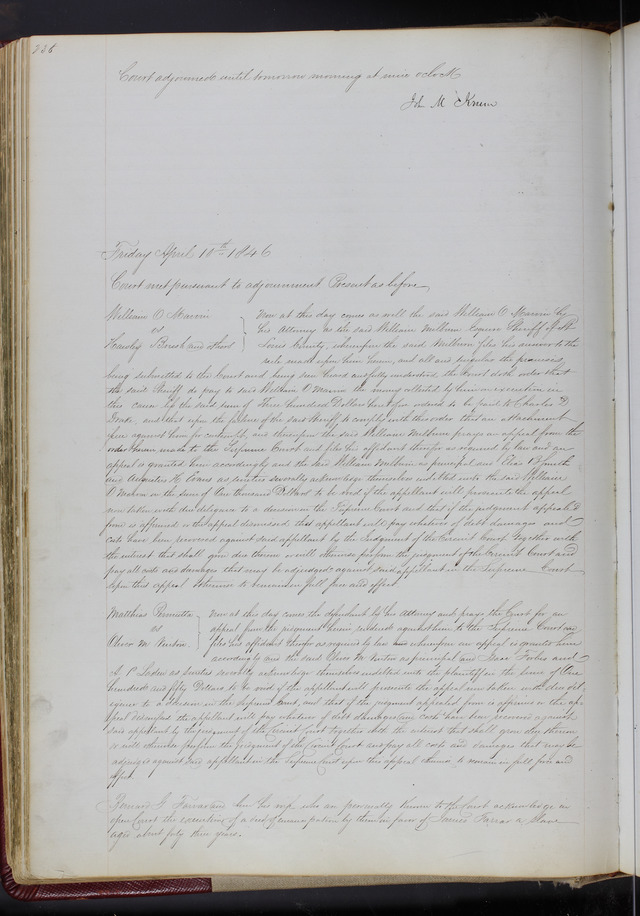 238
Court adjourned until tomorrow morning at nine oclock
Jn M Krum
Friday April 10th 1846
Court met pursuant to adjournment Present as before
William O Marvin
vs
and
Now at this day comes as well the said William O Marvin by
his Attorney as the said William Milburn Sheriff of St
Louis County, whereupon the said Milburn files his answer to the
rule made upon him herein, and all and singular the premises
being submitted to the Court and being seen heard and fully understood, the Court doth order that
the said Sheriff do pay to said William O Marvin the money collected by him on execution in
this cause of the said sum of Three hundred Dollars heretofore ordered to be paid to Charles D
Drake, and that upon the failure of the said Sheriff to comply with this order that an attachment
issue against him for contempt, and thereupon the said William Milburn prays an appeal from the
order herein made to the Supreme Court and files his affidavit therefor as required by law and an
appeal is granted him accordingly and the said William Milburn as principal and
and Augustus H Evans as sureties severally acknowledge themselves indebted unto the said William
O Marvin in the sum of One thousand Dollars to be void if the appellant will prosecute the appeal
now taken with due diligence to a decision in the Supreme Court and that if the judgment appealed
from is affirmed or the appeal dismissed that appellant will pay whatever of debt damages and
costs have been recovered against said appellant by the Judgment of the Circuit Court together with
the interest that shall grow due thereon or will otherwise perform the judgment of the Circuit Court and
pay all costs and damages that may be adjudged against said appellant in the Supreme Court
upon this appeal otherwise to remain in full force and effect
Matthias
vs
Oliver M.
Now at this day comes the defendant by his Attorney and prays the Court for an
appeal from the judgment herein rendered against him to the Supreme Court and
files his affidavit therefor as required by law whereupon an appeal is granted him
accordingly and the said Oliver M as principal and Isaac Forbes and
as sureties severally acknowledge themselves indebted unto the plaintiff in the sum of One
hundred and fifty Dollars to be void if the appellant will prosecute the appeal now taken with due dil
igence to a decision in the Supreme Court, and that if the judgment appealed from is affirmed or the ap
peal dismissed the appellant will pay whatever of debt damages and costs have been recovered against
said appellant by the judgment of the Circuit Court together with the interest that shall grow due thereon
or will otherwise perform the judgment of the Circuit Court and pay all costs and damages that may be
adjudged against said appellant in the Supreme Court upon this appeal otherwise to remain in full force and
effect
Bernard G Farrar and his wife who are personally known to the Court acknowledge in
open Court the execution of a deed of emancipation by them in favor of James Farrar a Slave
aged about forty three years.